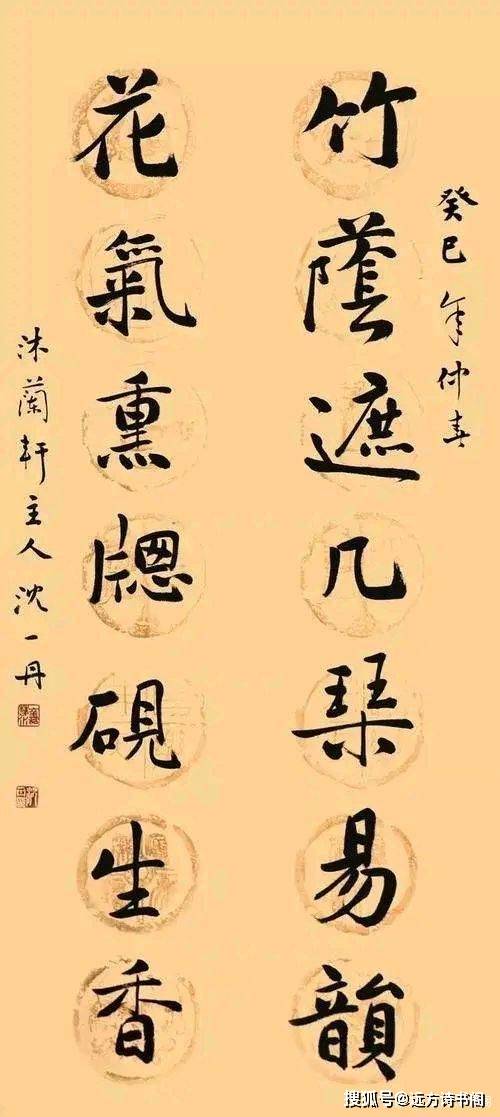 癸巳年仲春
竹蔭遮几琹易韻
花氣熏牕硯生香
沐蘭軒主人沈一丹
搜狐号@远方诗书阁